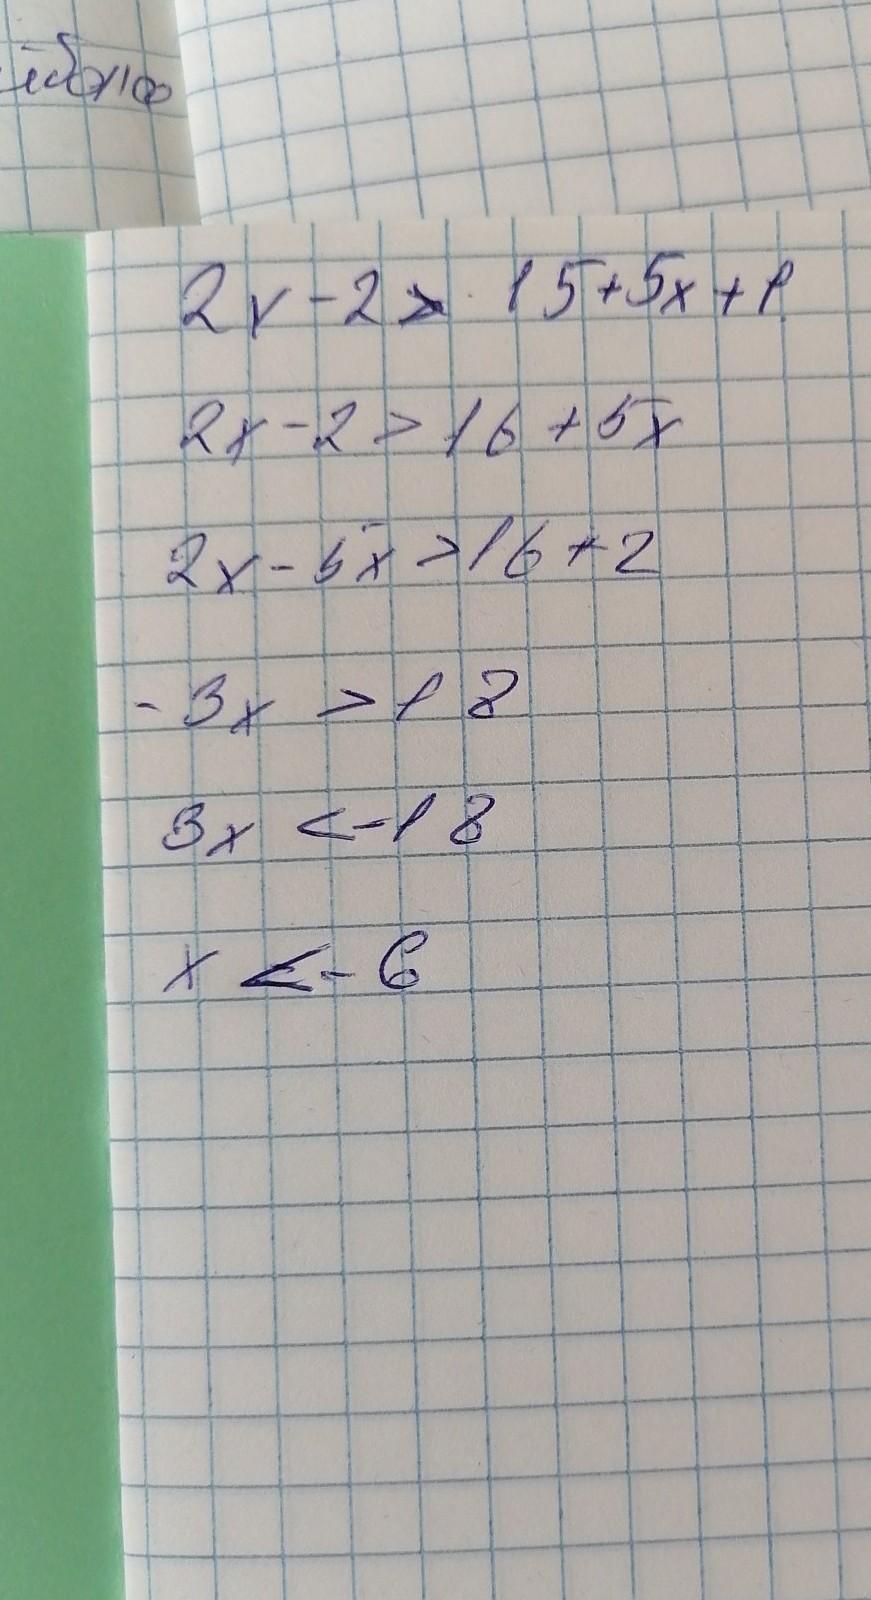 2x-2> 15+5x+1
2x-2>16+5x
2x-5x>16+2
-3x >18
3x <-18
x <-6